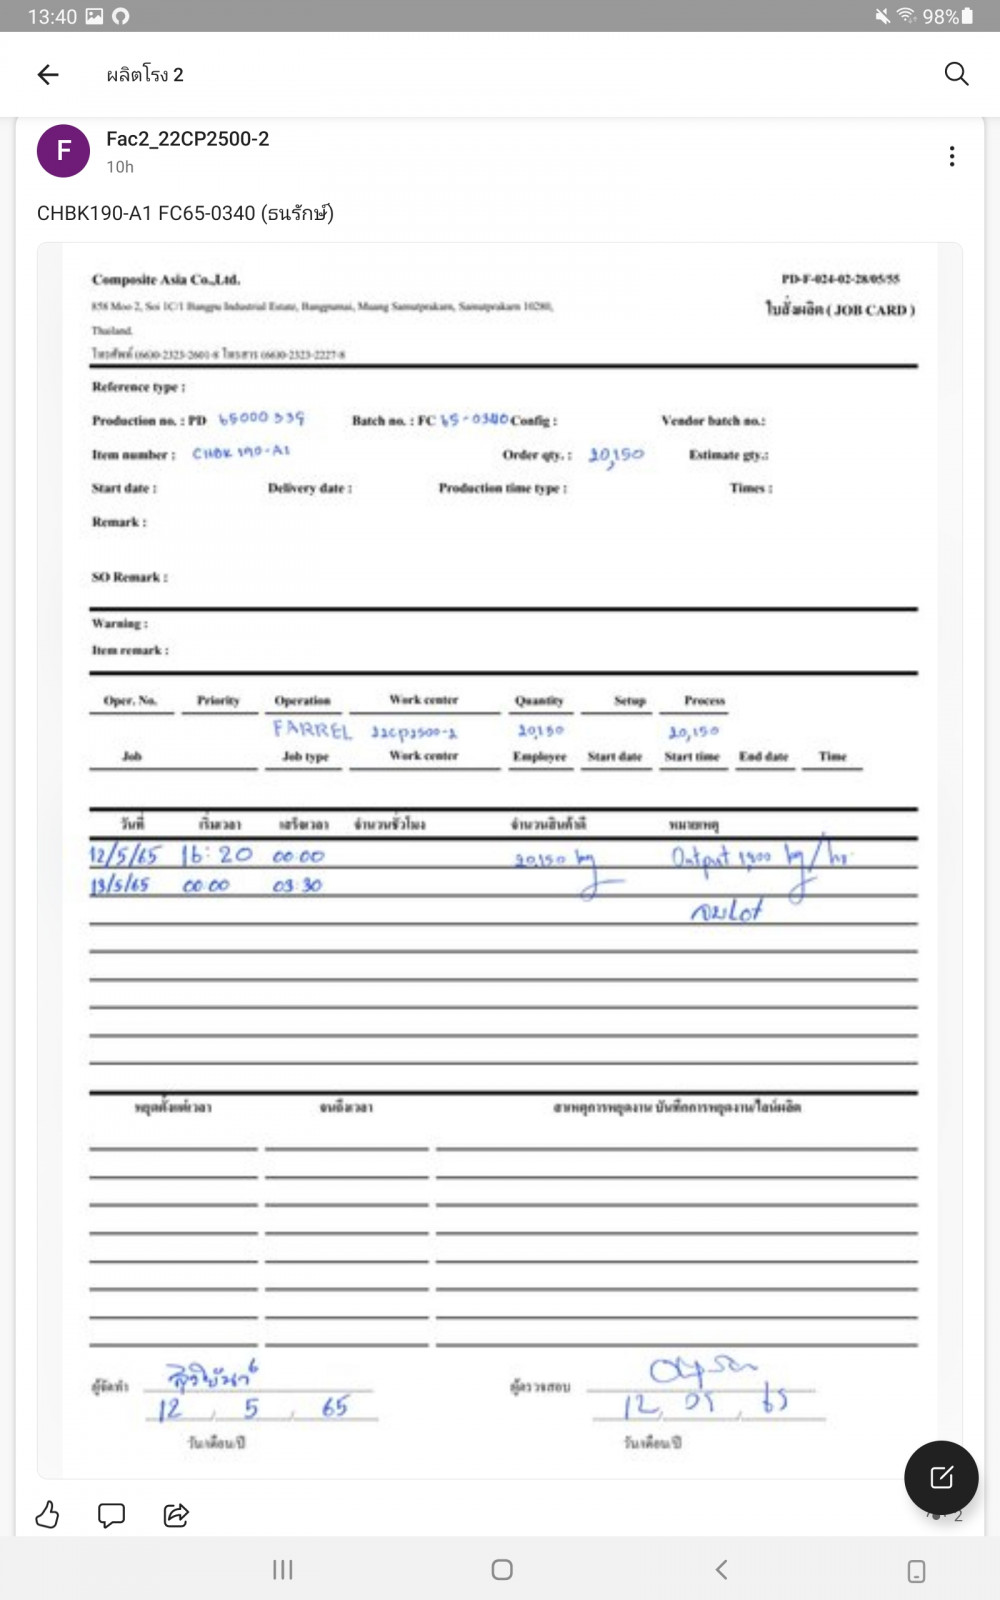 13:40 98%
ผลิตโรง 2
F Fac2_22CP2500-2
10h
CHBK190-A1 FC65-0340 (ธนรักษ์)
Composite Asia Co.,Ltd. PD-F-024-02-28/05/55
858 Moo 2, Soi 1C/1 Bangpu Industrial Estate, Bangpumai, Muang Samutprakarn, Samutprakarn 10280, ใบสั่งผลิต ( JOB CARD )
Thailand.
โทรศัพท์ (66)0-2323-2601-8 โทรสาร (66)0-2323-2227-8
Reference type :
Production no. : PD 65000539 Batch no. : FC 65-0340 Config : Vendor batch no.:
Item number : CHBK190-A1 Order qty. : 20,150 Estimate gty.:
Start date : Delivery date : Production time type : Times :
Remark :
SO Remark :
Warning :
Item remark :
Oper. No. Priority Operation Work center Quantity Setup Process
FARREL 22CP2500-2 20,150 20,150
Job Job type Work center Employee Start date Start time End date Time
วันที่ เริ่มเวลา เสร็จเวลา จำนวนชั่วโมง จำนวนสินค้าดี หมายเหตุ
12/5/65 16:20 00:00 20,150 kg Output 1,800 kg/hr.
13/5/65 00:00 03:30
จบLot
หยุดตั้งแต่เวลา จนถึงเวลา สาเหตุการหยุดงาน บันทึกการหยุดงาน/ไลน์ผลิต
ผู้จัดทำ ผู้ตรวจสอบ
12 , 5 , 65 12, 05 , 65
วัน/เดือน/ปี วัน/เดือน/ปี
2